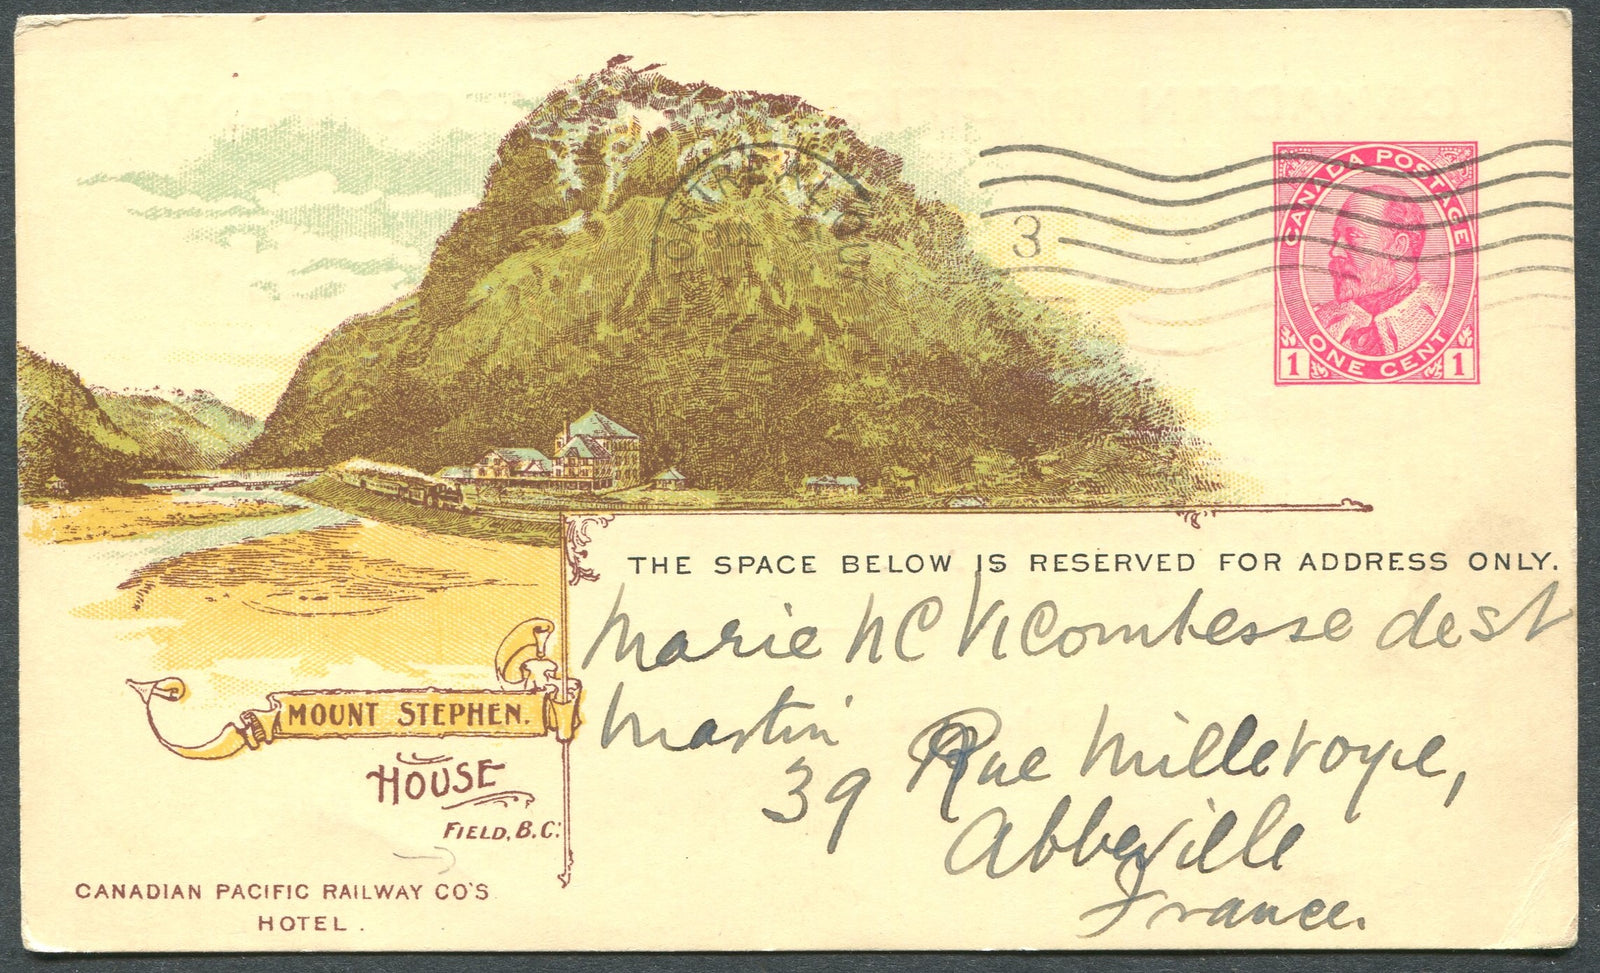 CANADA POSTAGE
ONE CENT
1 1
MONTREAL
3
THE SPACE BELOW IS RESERVED FOR ADDRESS ONLY.
Marie Vicomtesse de St
Martin
39 Rue Millevoye,
Abbeville
France.
MOUNT STEPHEN.
HOUSE
FIELD, B.C.
CANADIAN PACIFIC RAILWAY CO'S
HOTEL.